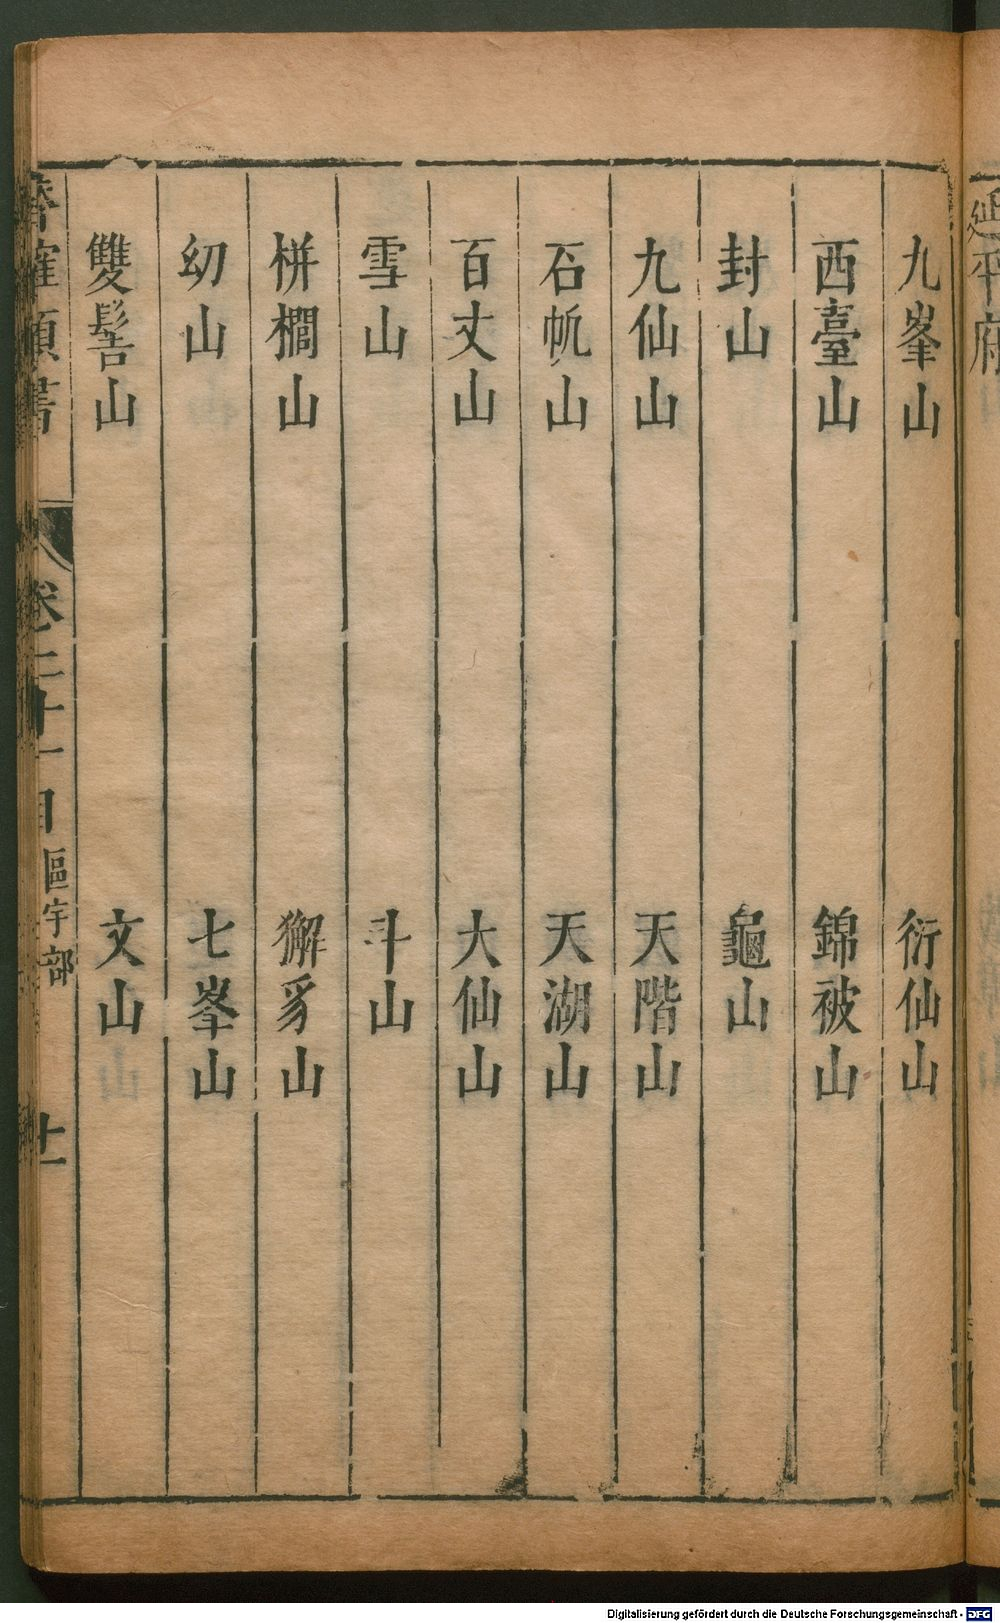 延平府
九峯山　衍仙山
西臺山　錦被山
封山　龜山
九仙山　天階山
石帆山　天湖山
百丈山　大仙山
雪山　斗山
栟櫚山　獬豸山
幼山　七峯山
雙髻山　文山
卷二十一目 區宇部 十一
Digitalisierung gefördert durch die Deutsche Forschungsgemeinschaft - DFG